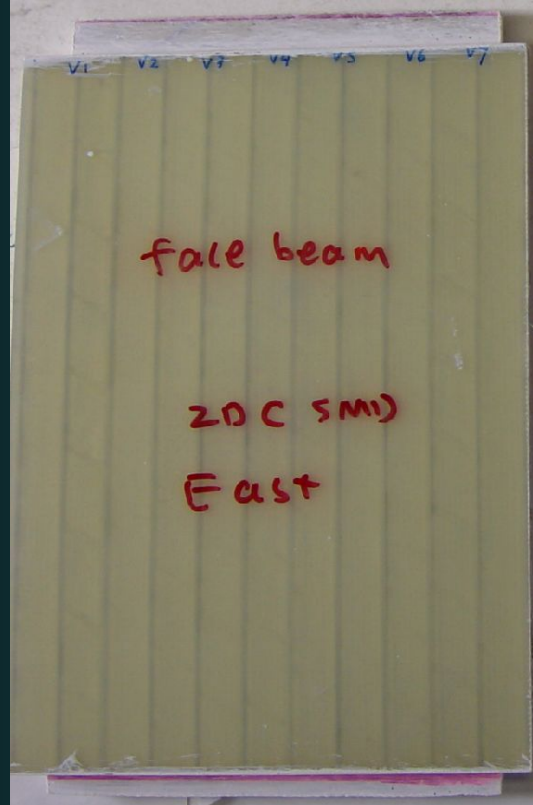 V1 V2 V3 V4 V5 V6 V7
face beam
ZDC SMD
East